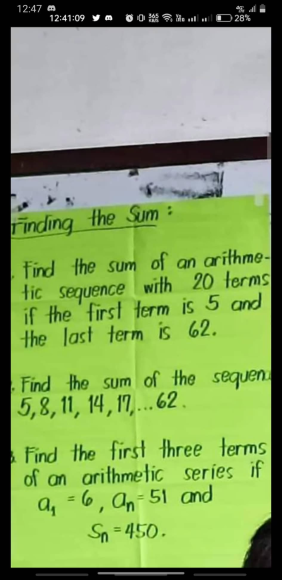 12:47
12:41:09 28%
Finding the Sum:
Find the sum of an arithme-
tic sequence with 20 terms
if the first term is 5 and
the last term is 62.
Find the sum of the
5,8,11, 14,17,...62.
Find the first three terms
of an arithmetic series if
a₁ = 6, aₙ = 51 and
Sₙ = 450.